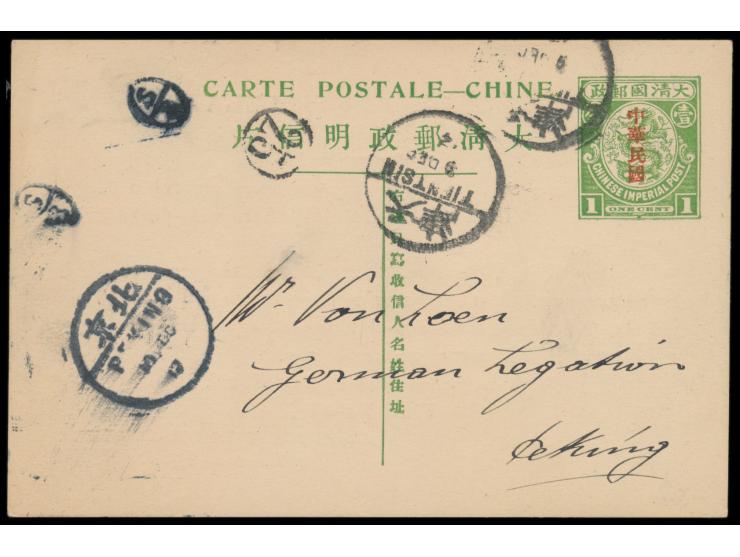 CARTE POSTALE—CHINE
大清郵政明信片
大清國郵政
壹
中華民國
CHINESE IMPERIAL POST
1 ONE CENT 1
TIENTSIN
9 DEC
天津
北京
PEKING
DEC
寫收信人名姓住址
Mr. Von Loen
German Legation
Peking